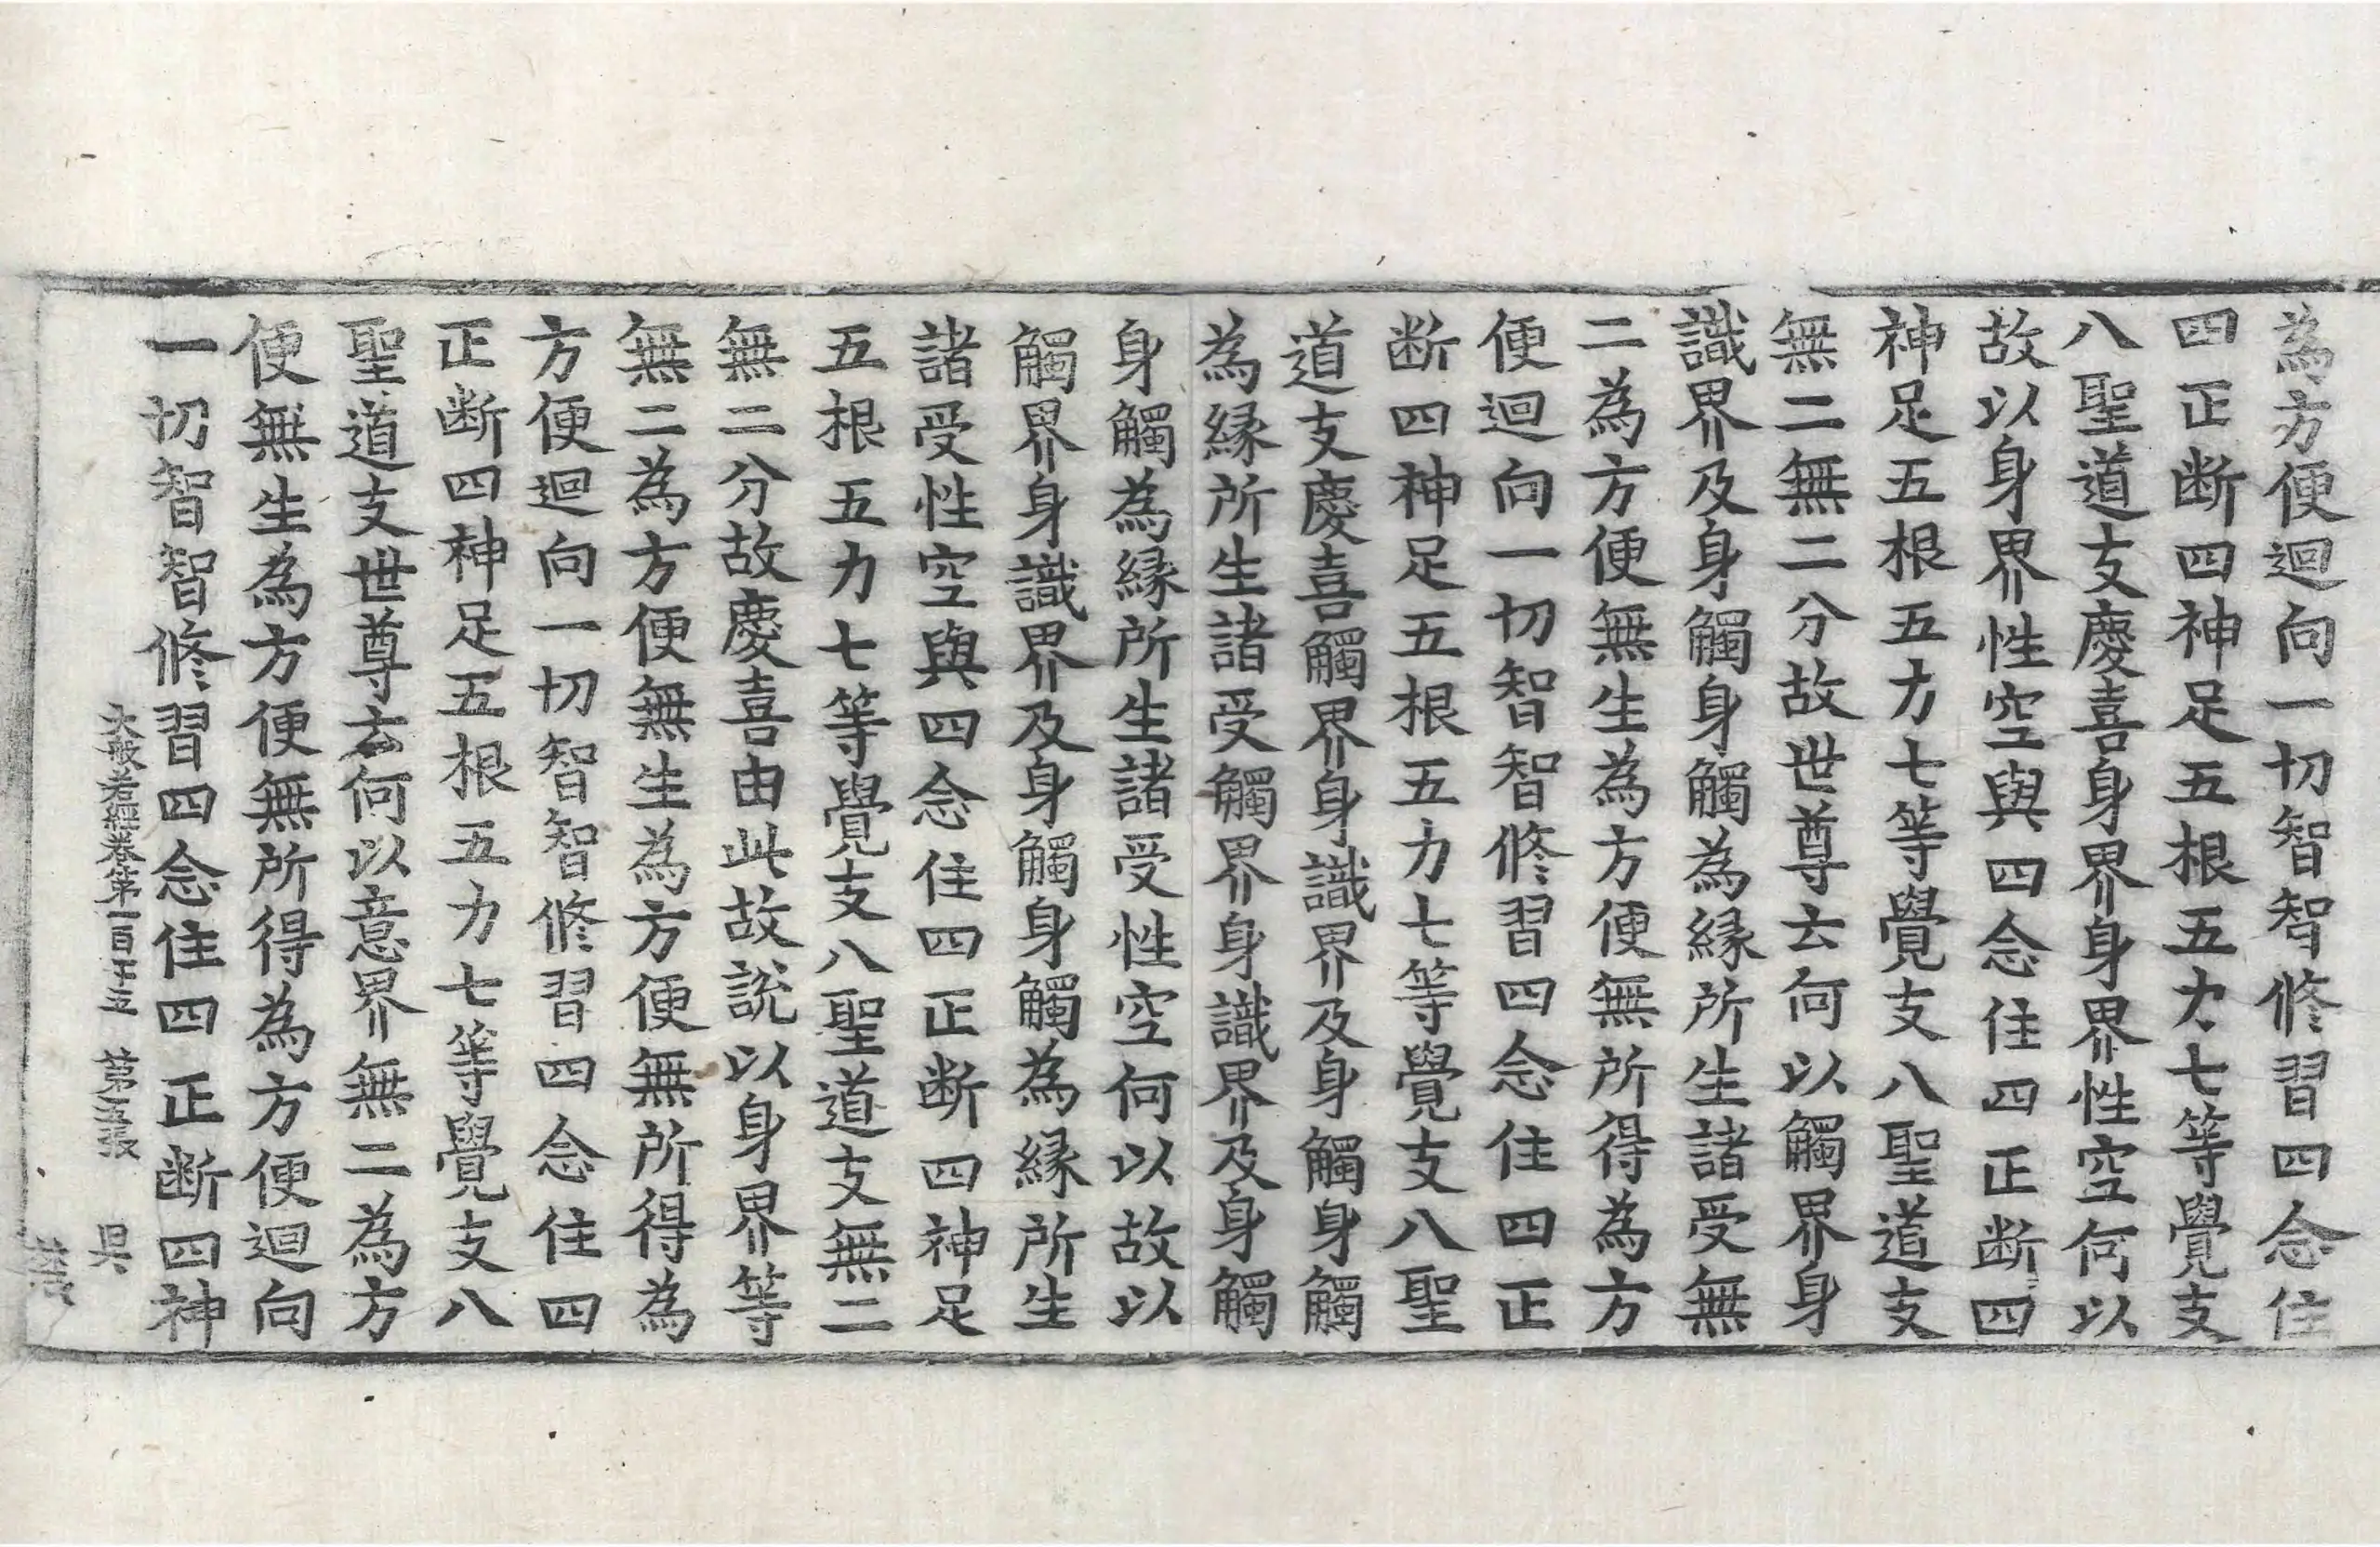 為方便迴向一切智智修習四念住
四正断四神足五根五力七等覺支
八聖道支慶喜身界身界性空何以
故以身界性空與四念住四正断四
神足五根五力七等覺支八聖道支
無二無二分故世尊云何以觸界身
識界及身觸身觸為縁所生諸受無
二為方便無生為方便無所得為方
便迴向一切智智修習四念住四正
断四神足五根五力七等覺支八聖
道支慶喜觸界身識界及身觸身觸
為縁所生諸受觸界身識界及身觸
身觸為縁所生諸受性空何以故以
觸界身識界及身觸身觸為縁所生
諸受性空與四念住四正断四神足
五根五力七等覺支八聖道支無二
無二分故慶喜由此故說以身界等
無二為方便無生為方便無所得為
方便迴向一切智智修習四念住四
正断四神足五根五力七等覺支八
聖道支世尊云何以意界無二為方
便無生為方便無所得為方便迴向
一切智智修習四念住四正断四神
大般若經卷第一百十五 第五張 昃